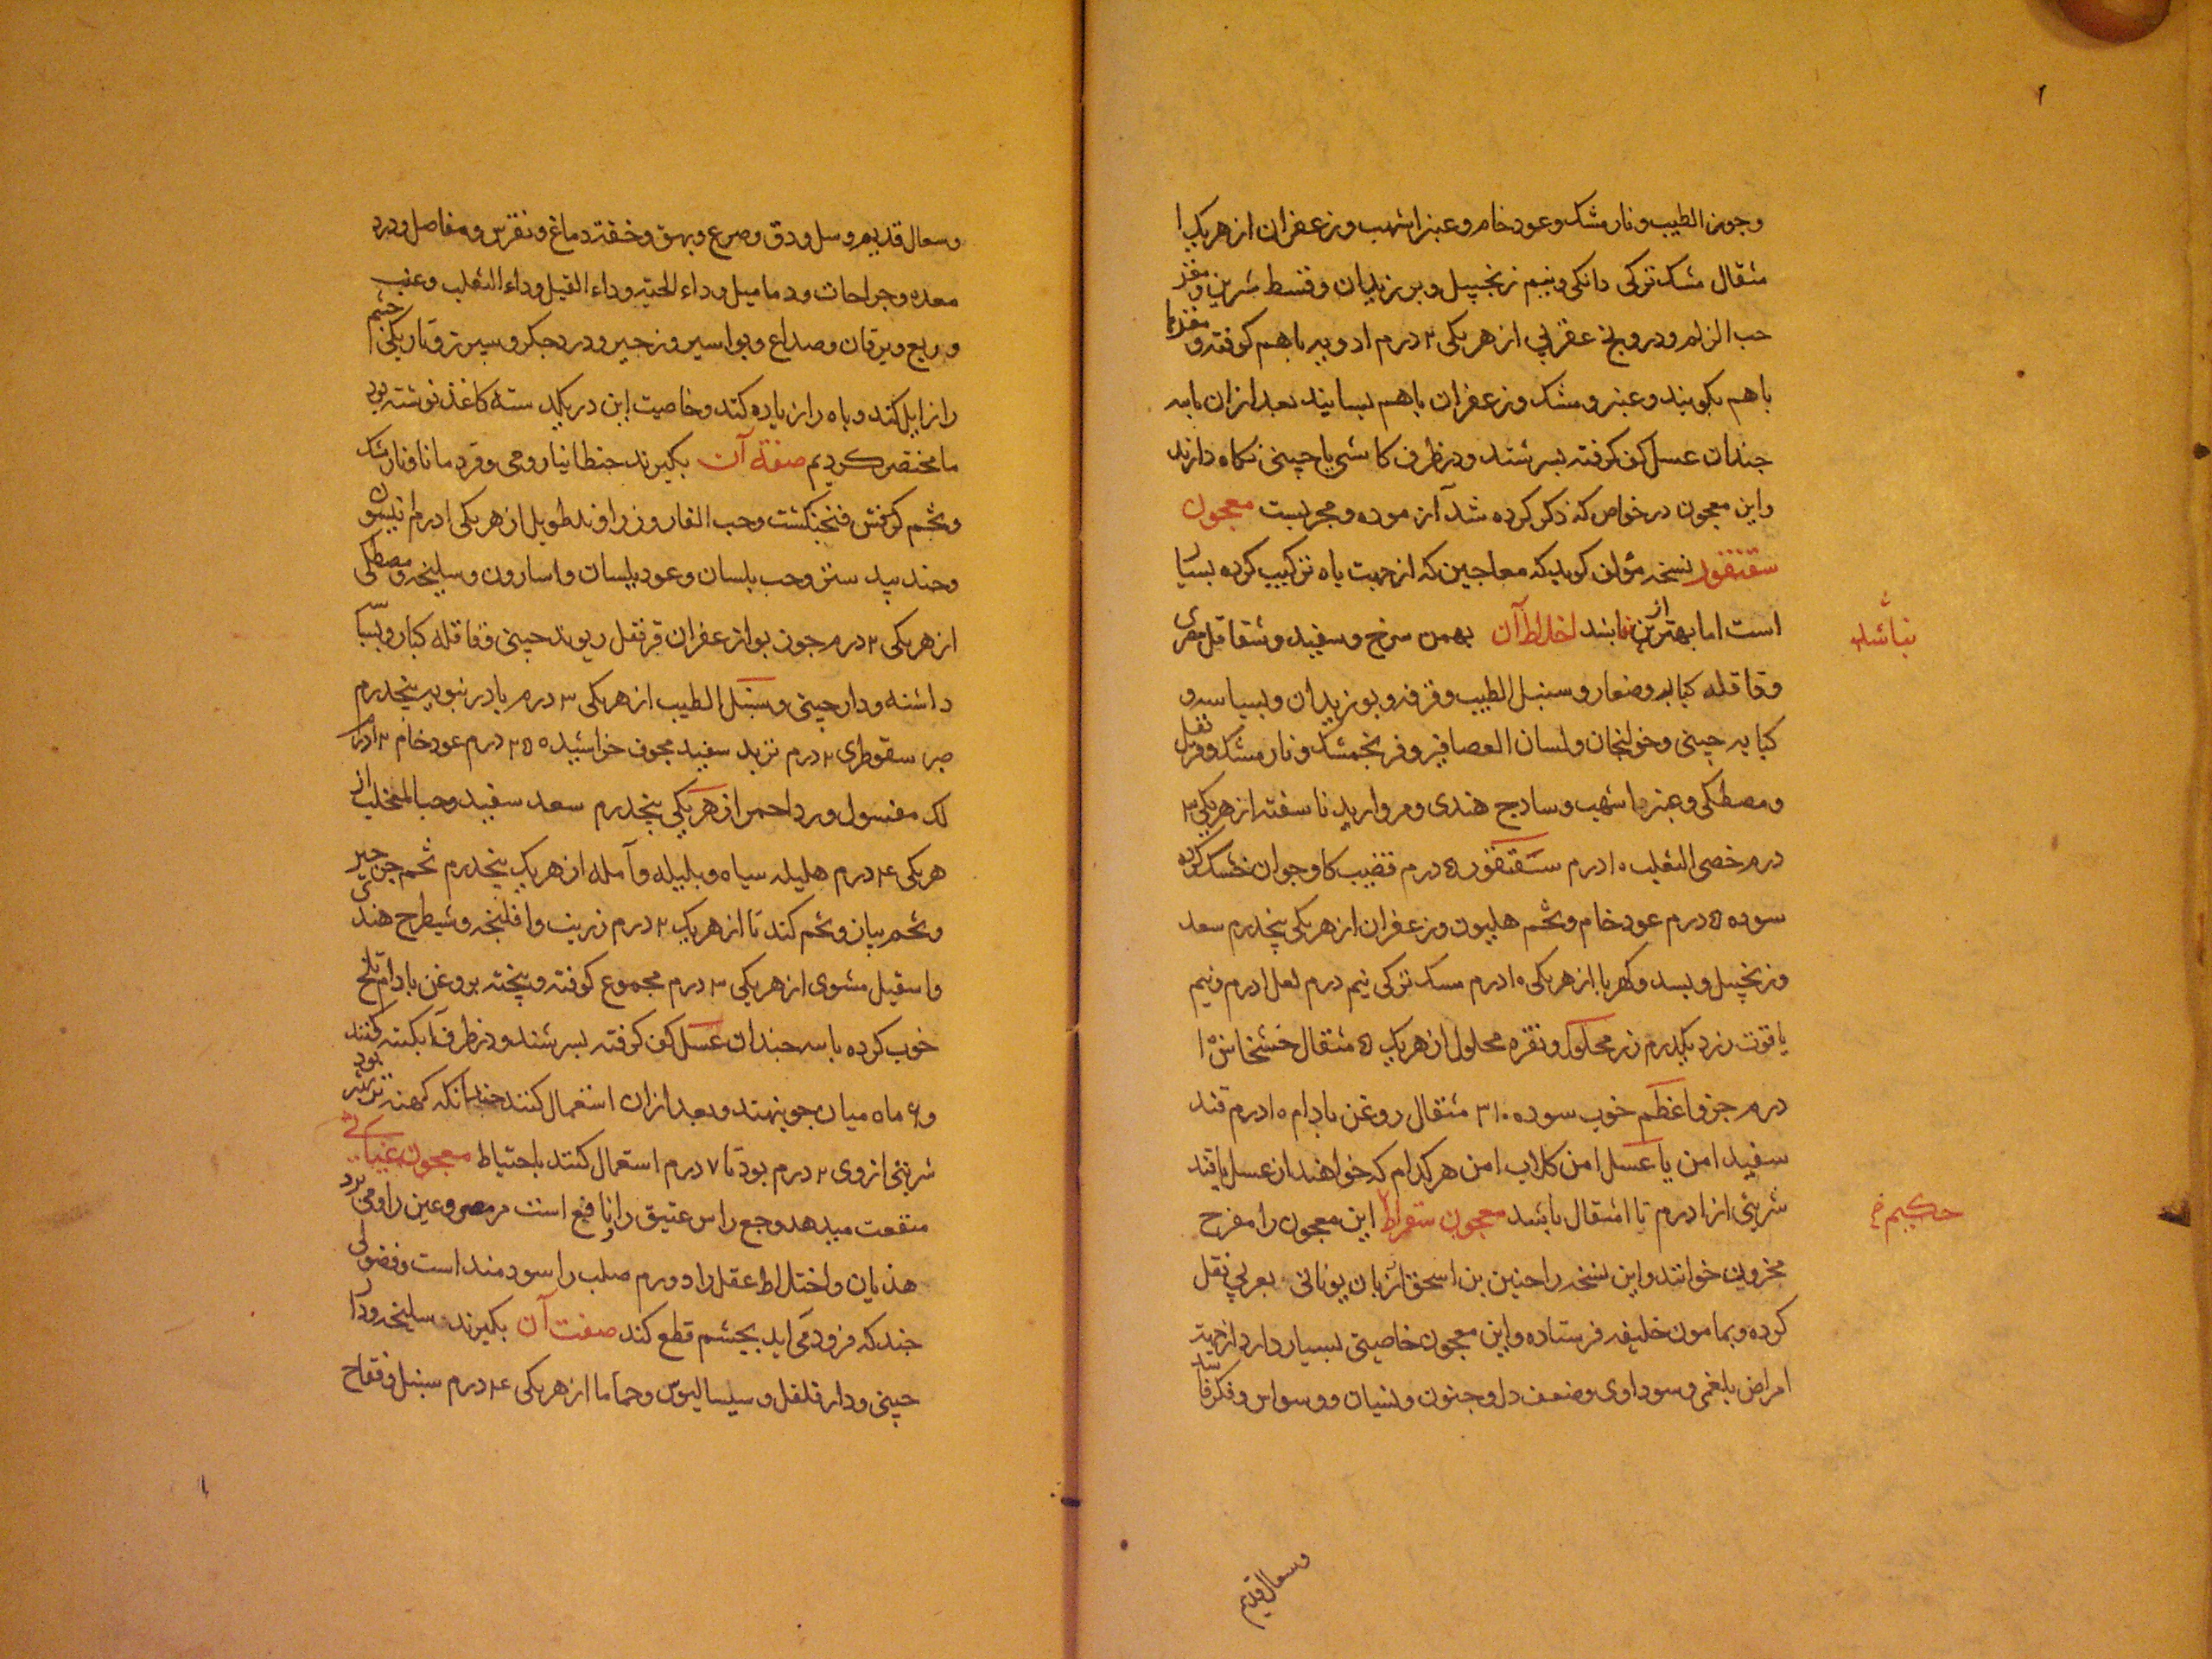 وجوز الطیب و نارمشک و عود خام و عنبر اشهب و زعفران از هریک ۱
مثقال مشک ترکی دانکی و نیم زنجبیل و بوزیدان و قسط شرین و مغز
حب الزلم و درونج عقربی از هریکی ۲ درم ادویه باهم کوفته و مغزها
باهم بکوبند و عنبر و مشک و زعفران باهم بسایند بعد ازان باسه
چندان عسل کف کرفته بسرشند و در ظرف کاشی یا چینی نکاه دارند
واین معجون در خواص که ذکر کرده شد آزموده و مجربست معجون
سقنقور نسخه مؤلف کوید که معاجین که از جهت باه ترکیب کرده بسیار
است اما بهتر ازین نباشد اخلاط آن بهمن سرخ و سفید و شقاقل مصری
نباشد
وقاقله کبابه و صغار و سنبل الطیب و قرفه و بوزیدان و بسباسه و
کبابه چینی و خولنجان و لسان العصافیر و فرنجمشک و نارمشک و قرنفل
و مصطکی و عنبر اشهب و سادج هندی و مروارید ناسفته از هریکی ۳
درم خصی الثعلب ۱۰ درم سقنقور ۵ درم قضیب کاو جوان خشک کرده
سوده ۵ درم عود خام و تخم هلیون و زعفران از هریکی پنجدرم سعد
و زنجبیل و بسد و کهربا از هریکی ۱۰ درم مسک ترکی نیم درم لعل ۱ درم و نیم
یاقوت زرد یکدرم زر محلول و نقره محلول از هریک ۵ مثقال خشخاش ۱۰
درم جزو اعظم خوب سوده ۳۱۰ مثقال روغن بادام ۱۵ درم قند
سفید ۱ من یا عسل ۱ من کلاب ۱ من هرکدام که خواهند از عسل یا قند
شربتی از ۱ درم تا ۱ مثقال باشد معجون سقراط این معجون را مفرح
حکیم
مخزون خوانند و این نسخه را حنین بن اسحق از زبان یونانی بعربی نقل
کرده و بمامون خلیفه فرستاده و این معجون خاصیتی بسیار دارد از جهت
امراض بلغمی و سوداوی و ضعف دل و جنون و نسیان و وسواس و فکر فاسد
وسعال قدیم
وسعال قدیم و سل و دق و صرع و بهق و خفقه دماغ و نقرس و مفاصل و درد
معده و جراحات و دمامیل و داء الحیه و داء الفیل و داء الثعلب و غب
و ربع و یرقان و صداع و بواسیر و زحیر و درد جکر و سپرز و تاریکی چشم
را زایل کند و باه را زیاده کند و خاصیت این در یکد سته کاغذ نوشته بود
ما مختصر کردیم صفة آن بکیرند جنطانیا رومی و قردمانا و نارمشک
و تخم کرفس فنجنکشت و حب الغار و زراوند طویل از هریکی ۱ درم انیسون
و جند بیدستر و حب بلسان و عود بلسان و اسارون و سلیخه و مصطکی
از هریکی ۲ درم جوز بوا زعفران قرنفل ریوند چینی و قاقله کبار و بسبا
داشنه و دارچینی و سنبل الطیب از هریکی ۳ درم بادرنبویه پنجدرم
صبر سقوطری ۲ درم تربد سفید مجوف خراشیده ۲۵ درم عود خام ۲ درم
لک مغسول ورد احمر از هریکی پنجدرم سعد سفید و حب المنخلب از
هریکی ۴ درم هلیله سیاه و بلیله و آمله از هریک پنجدرم تخم جرجیر
و تخم پیاز و تخم کندنا از هریک ۲ درم زرینب و افلنجه و شیطرج هندی
واسقیل مشوی از هریکی ۳ درم مجموع کوفته و پیخته بروغن بادام تلخ
خوب کرده باسه چندان عسل کف کرفته بسرشند و در ظرف آبکینه کنند
و ۶ ماه میان جو بنهند و بعد ازان استعمال کنند چندانکه کهنه تر بود بهتر
شربتی از وی ۲ درم بود تا ۷ درم استعمال کنند باحتیاط معجون غیاثی
منفعت میدهد وجع راس عتیق را و نافع است مر مصروعین را و می برد
هذیان و اختلاط عقل را و ورم صلب را سودمند است و فضولی
چند که فرود می آید بچشم قطع کند صفت آن بکیرند سلیخه و دار
چینی و دارفلفل و سیسالیوس و حماما از هریکی ۴ درم سنبل و فقاح